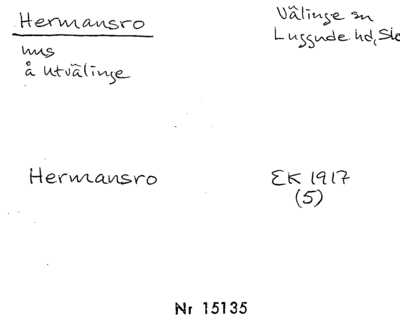 Hermansro
Välinge sn
Luggude hd,
hus
å Utvälinge
Hermansro
EK 1917
(5)
Nr 15135